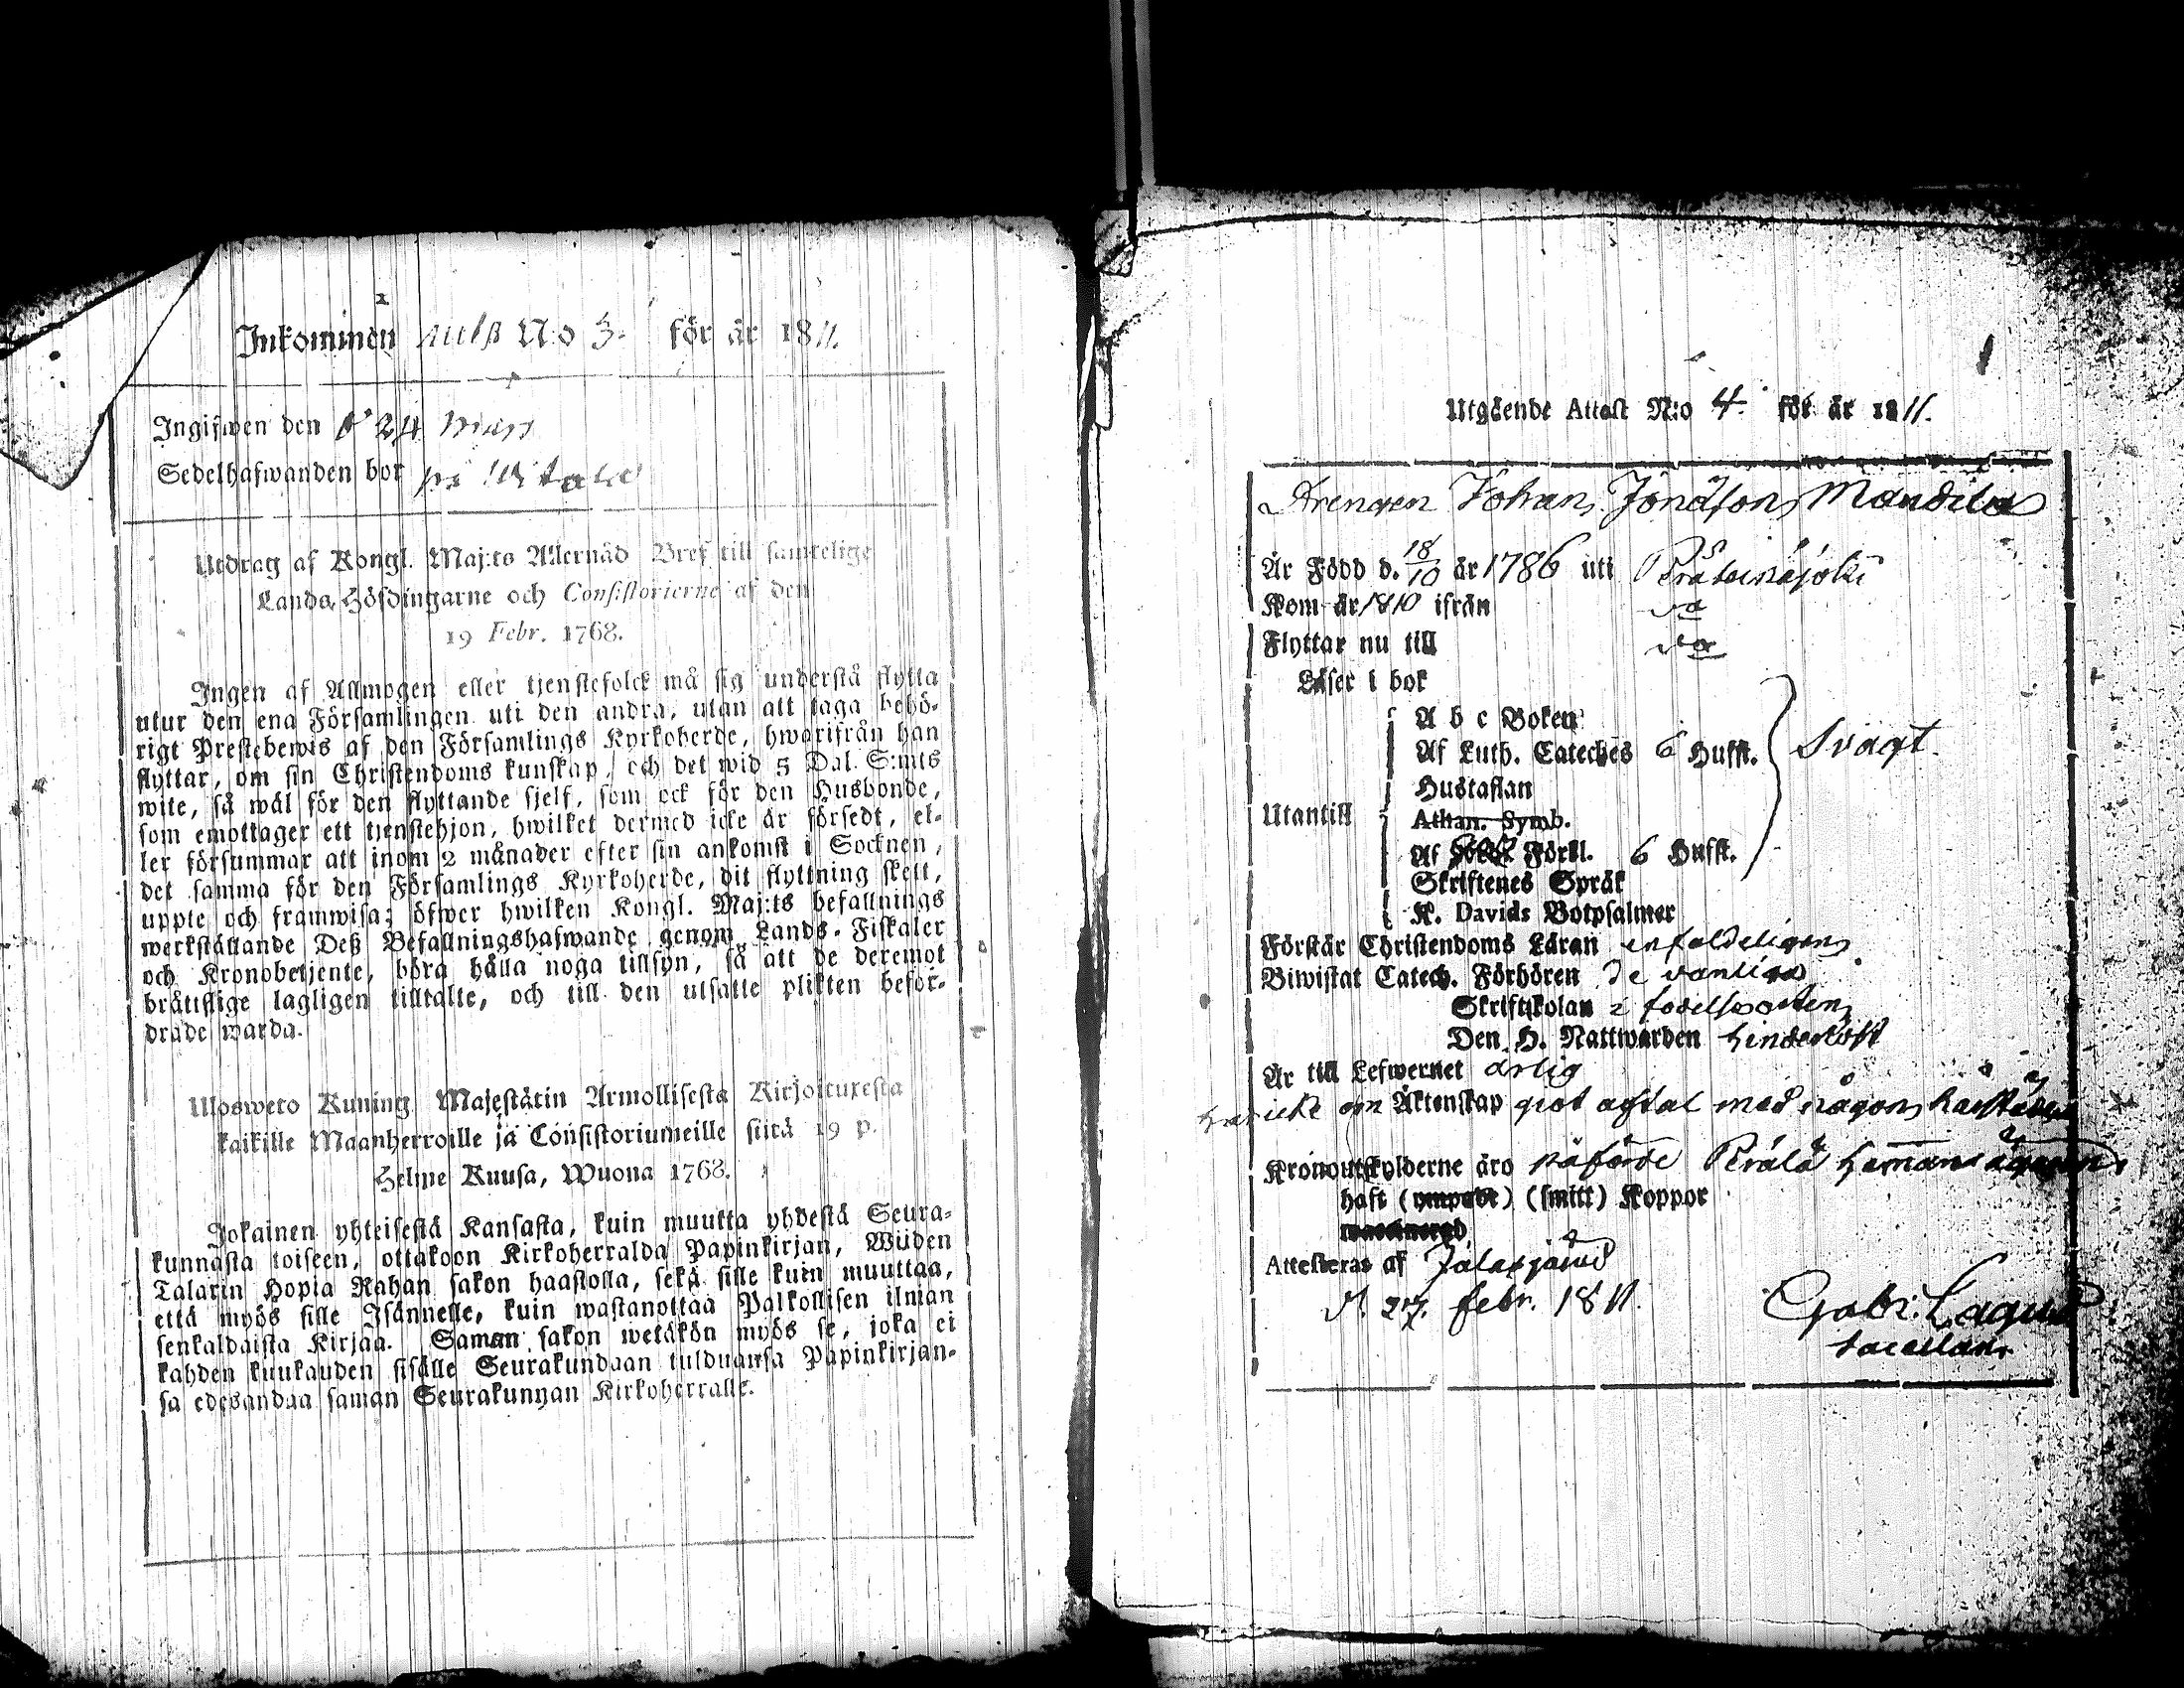 Inkommen Attest No 3. för år 1811.
Ingifwen den d 24 Mars
Sedelhafwanden bor på
Utdrag af Kongl. Maj:ts Allernåd Bref till samtelige
Lands-Höfdingarne och Consistorierne af den
19 Febr. 1768.
Ingen af Allmogen eller tjenstefolck må sig understå flytta
utur den ena Församlingen uti den andra, utan att taga behö-
rigt Prestebewis af den Församlings Kyrkoherde, hwarifrån han
flyttar, om sin Christendoms kunskap, och det wid 5 Dal. S:mts
wite, så wäl för den flyttande sjelf, som ock för den Husbonde,
som emottager ett tjenstehjon, hwilket dermed icke är försedt, el-
ler försummar att inom 2 månader efter sin ankomst i Socknen,
det samma för den Församlings Kyrkoherde, dit flyttning skett,
uppte och framwisa; öfwer hwilken Kongl. Maj:ts befallnings
werkställande Deß Befallningshafwande genom Lands-Fiskaler
och Kronobetjente, böra hålla noga tillsyn, så att de deremot
bråttslige lagligen tilltalte, och till den utsatte plikten befor-
drade warda.
Ulosweto Kuning. Majestätin Armollisesta Kirjoituxesta
kaikille Maanherroille ja Consistoriumeille siitä 19 p.
Helme Kuusa, Wuona 1768.
Jokainen yhteisestä Kansasta, kuin muutta yhdestä Seura-
kunnasta toiseen, ottakoon Kirkoherralda Papinkirjan, Wiiden
Talarin Hopia Rahan sakon haastolla, sekä sille kuin muuttaa,
että myös sille Isännelle, kuin wastanottaa Palkollisen ilman
senkaldaista Kirjaa. Saman sakon wetäkön myös se, joka ei
kahden kuukauden sisälle Seurakundaan tulduansa Papinkirjan-
sa edesandaa saman Seurakunnan Kirkoherralle.
Utgående Attest N:o 4. för år 1811.
Drengen Johan Jonasson Mandila
Är Född d. 18/10 år 1786 uti Peräseinäjoki
Kom år 1810 ifrån
Flyttar nu till
Läser i bok
A b c Boken
Af Luth. Cateches 6 Hufst. Svagt.
Hustaflan
Utantill
Athan. Symb.
Af Förkl. 6 Hufst.
Skriftenes Språk
K. Davids Botpsalmer
Förstår Christendoms Läran enfaldeligen
Biwistat Catech. Förhören de vanliga
Skriftskolan i födelseorten
Den H. Nattwarden hinderlöst
Är till Lefwernet ärlig
har icke om Äktenskap gjort aftal med någon härstädes
Kronoutskylderne äro påförde Perälä hemmans ägaren
haft (ympade) (smitt) Koppor
Attesteras af Jalasjärvi
d. 27. febr. 1811. Gabr. Lagus
Sacellan.